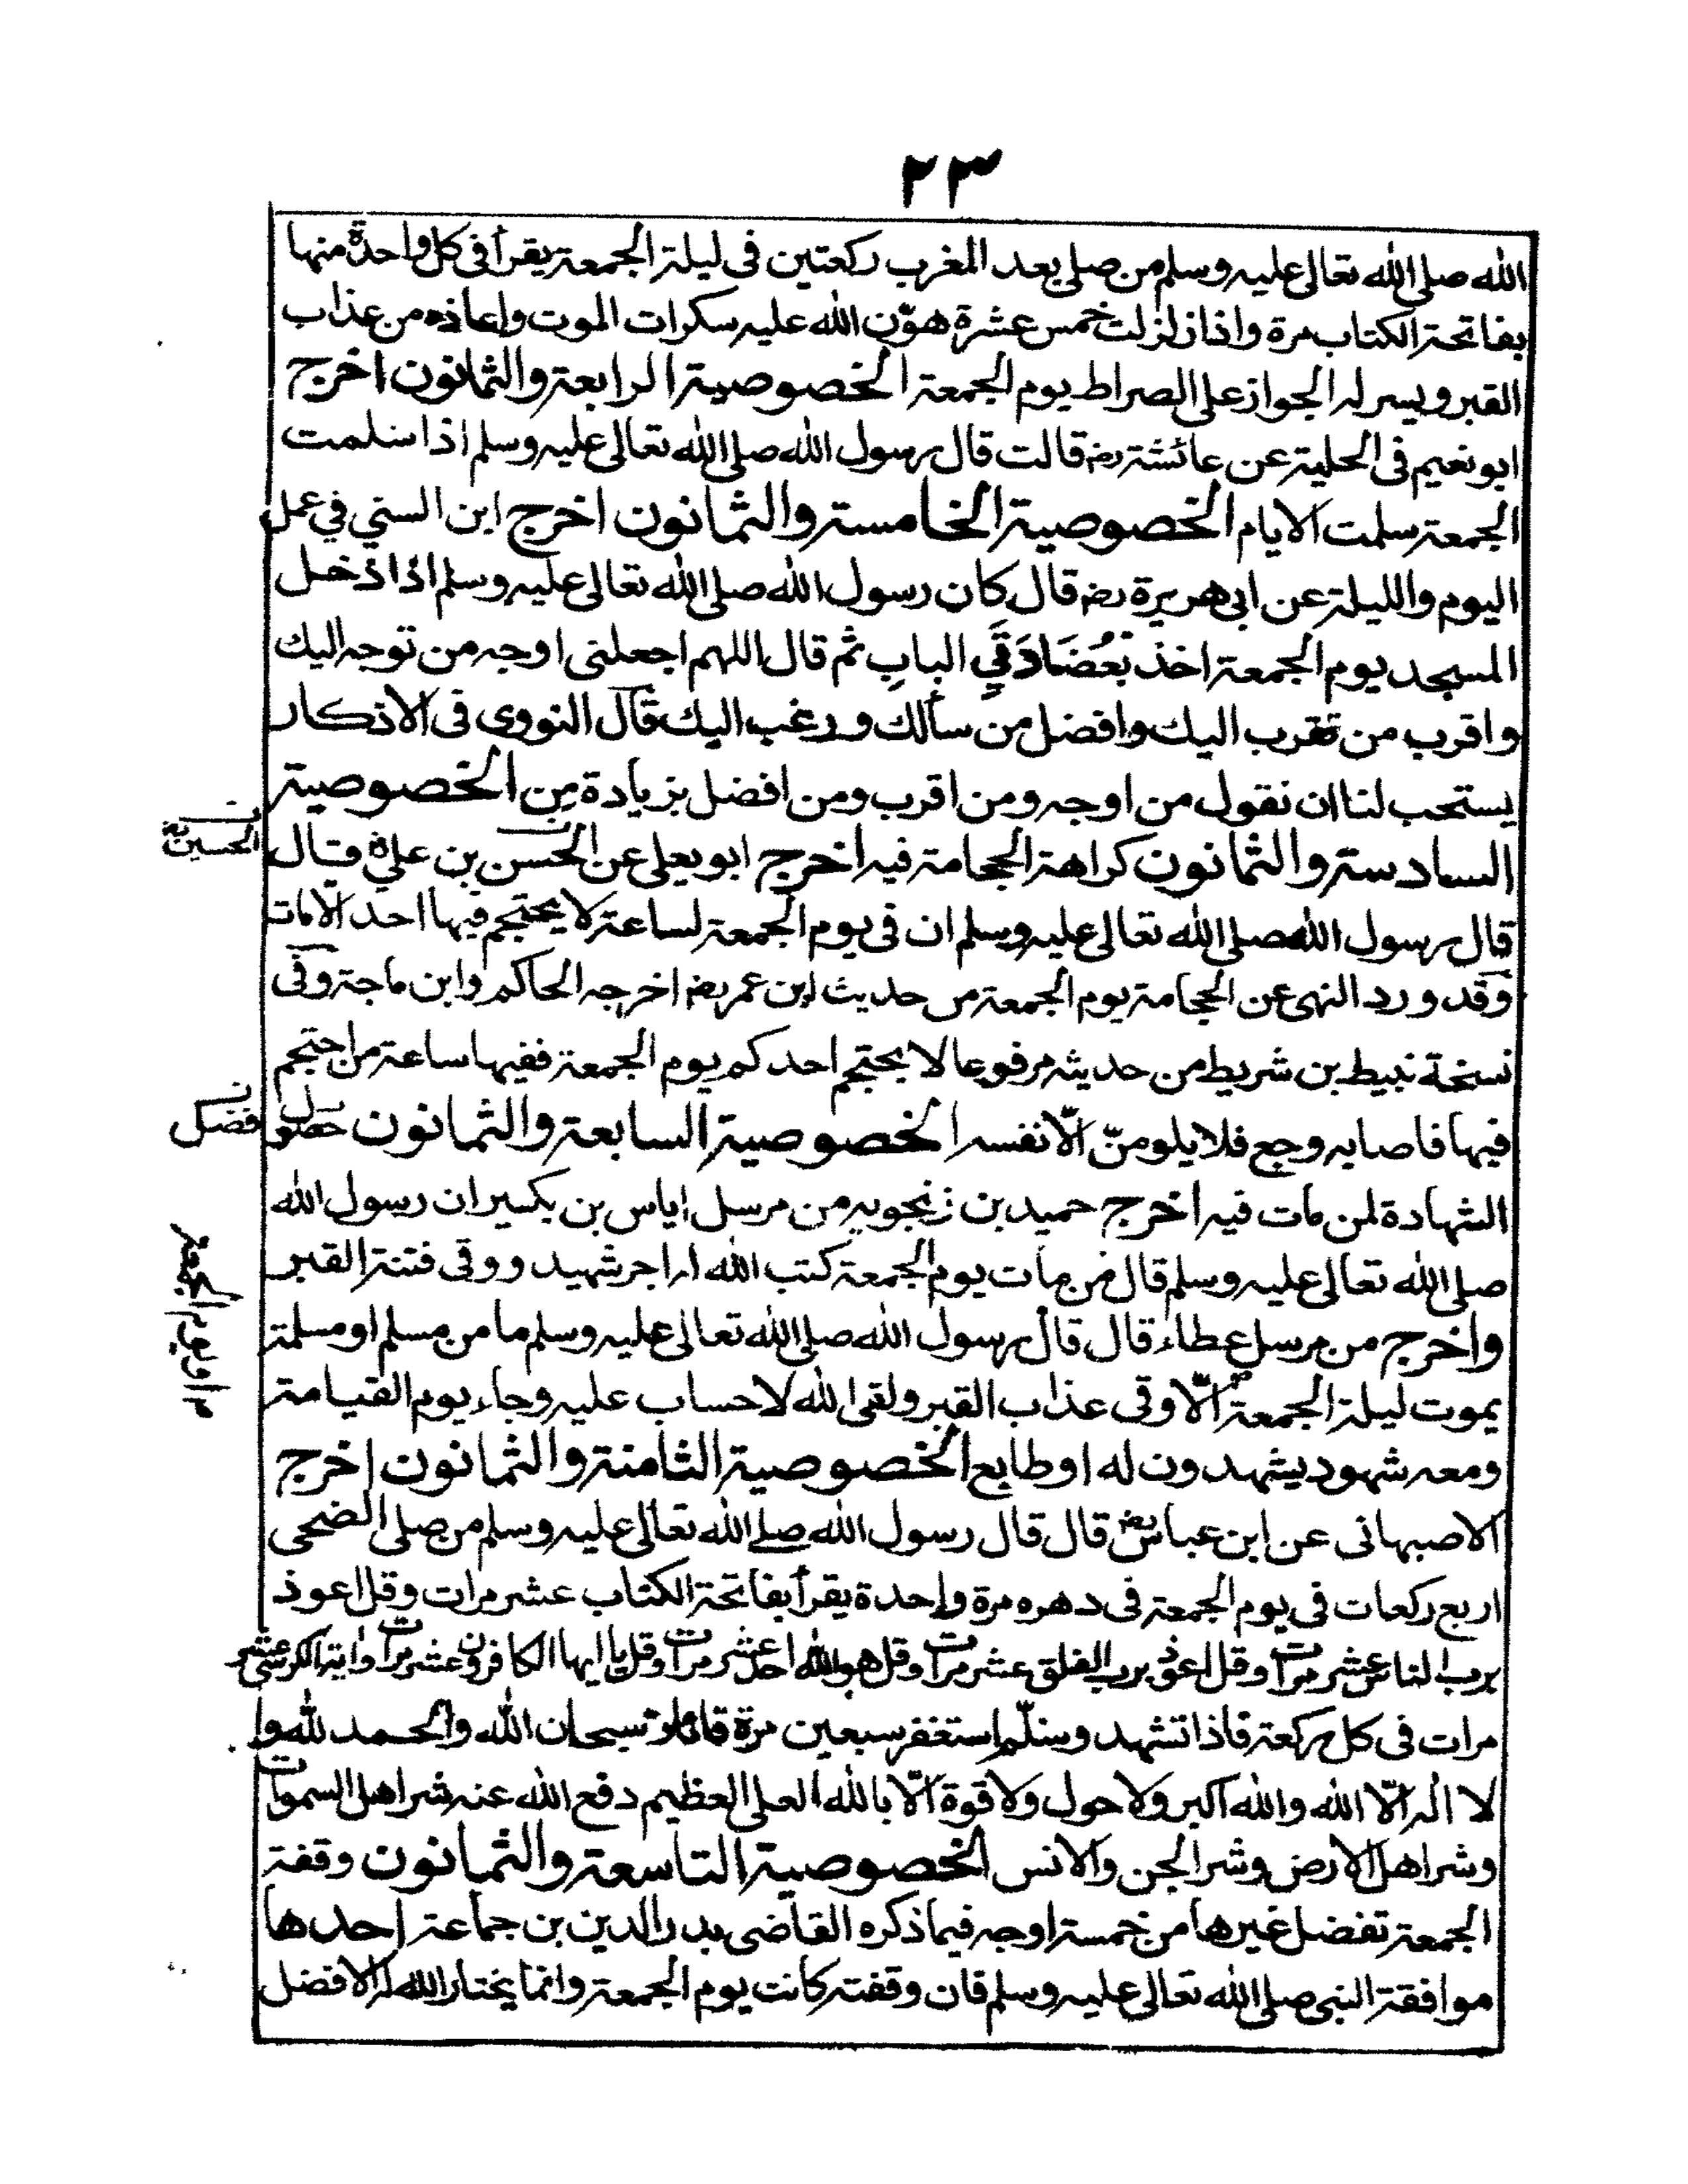 ٢٣
الله صلى الله تعالى عليه وسلم من صلى بعد المغرب ركعتين في ليلة الجمعة يقرأ في كل واحدة منها
بفاتحة الكتاب مرة واذا زلزلت خمس عشرة هوّن الله عليه سكرات الموت واعاذه من عذاب
القبر ويسر له الجواز على الصراط يوم الجمعة الخصوصية الرابعة والثمانون اخرج
ابو نعيم في الحلية عن عائشة رضـ قالت قال رسول الله صلى الله تعالى عليه وسلم اذا سلمت
الجمعة سلمت الايام الخصوصية الخامسة والثمانون اخرج ابن السني في عمل
اليوم والليلة عن ابى هريرة رضـ قال كان رسول الله صلى الله تعالى عليه وسلم اذا دخل
المسجد يوم الجمعة اخذ بعُضَادَتَيِ الباب ثم قال اللهم اجعلنى اوجه من توجه اليك
واقرب من تقرب اليك وافضل من سألك ورغب اليك قال النووى فى الاذكار
يستحب لنا ان نقول من اوجه ومن اقرب ومن افضل بزيادة مِن الخصوصية
السادسة والثمانون كراهة الحجامة فيه اخرج ابو يعلى عن الحسن بن علي قال
الحسين
قال رسول الله صلى الله تعالى عليه وسلم ان فى يوم الجمعة لساعة لا يحتجم فيها احد الّا مات
وقد ورد النهى عن الحجامة يوم الجمعة من حديث ابن عمر رضـ اخرجه الحاكم وابن ماجة وفى
نسخة نبيط بن شريط من حديثه مرفوعا لا يحتجم احدكم يوم الجمعة ففيها ساعة من احتجم
فيها فاصابه وجع فلا يلومنّ الّا نفسه الخصوصية السابعة والثمانون حصول
فضل
الشهادة لمن مات فيه اخرج حميد بن زنجويه من مرسل اياس بن بكسير ان رسول الله
صلى الله تعالى عليه وسلم قال من مات يوم الجمعة كتب الله له اجر شهيد ووقى فتنة القبر
واخرج من مرسل عطاء قال قال رسول الله صلى الله تعالى عليه وسلم ما من مسلم او مسلمة
يموت ليلة الجمعة الّا وقى عذاب القبر ولقى الله لا حساب عليه وجاء يوم القيامة
او يوم الجمعة
ومعه شهود يشهدون له او طابع الخصوصية الثامنة والثمانون اخرج
الاصبهانى عن ابن عباس رضـ قال قال رسول الله صلى الله تعالى عليه وسلم من صلى الضحى
اربع ركعات فى يوم الجمعة فى دهره مرة واحدة يقرأ بفاتحة الكتاب عشر مرات وقل اعوذ
برب الناس عشر مرات وقل اعوذ برب الفلق عشر مرات وقل هو الله احد عشر مرات وقل يا ايها الكافرون عشر مرات واية الكرسى عشر
مرات فى كل ركعة فاذا تشهد وسلّم استغفر سبعين مرة قائلا سبحان الله والحمد لله و
لا اله الّا الله والله اكبر ولا حول ولا قوة الّا بالله العلى العظيم دفع الله عنه شر اهل السموات
وشر اهل الارض وشر الجن والانس الخصوصية التاسعة والثمانون وقفة
الجمعة تفضل غيرها من خمسة اوجه فيما ذكره القاضى بدر الدين بن جماعة احدها
موافقة النبى صلى الله تعالى عليه وسلم فان وقفته كانت يوم الجمعة وانما يختار الله له الافضل